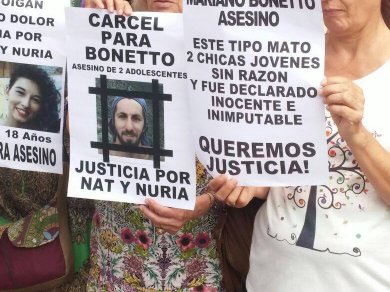 OIGAN
O DOLOR
IA POR
Y NURIA
18 Años
RA ASESINO
CARCEL
PARA
BONETTO
ASESINO DE 2 ADOLESCENTES
JUSTICIA POR
NAT Y NURIA
MARIANO BONETTO
ASESINO
ESTE TIPO MATO
2 CHICAS JOVENES
SIN RAZON
Y FUE DECLARADO
INOCENTE E
INIMPUTABLE
QUEREMOS
JUSTICIA!